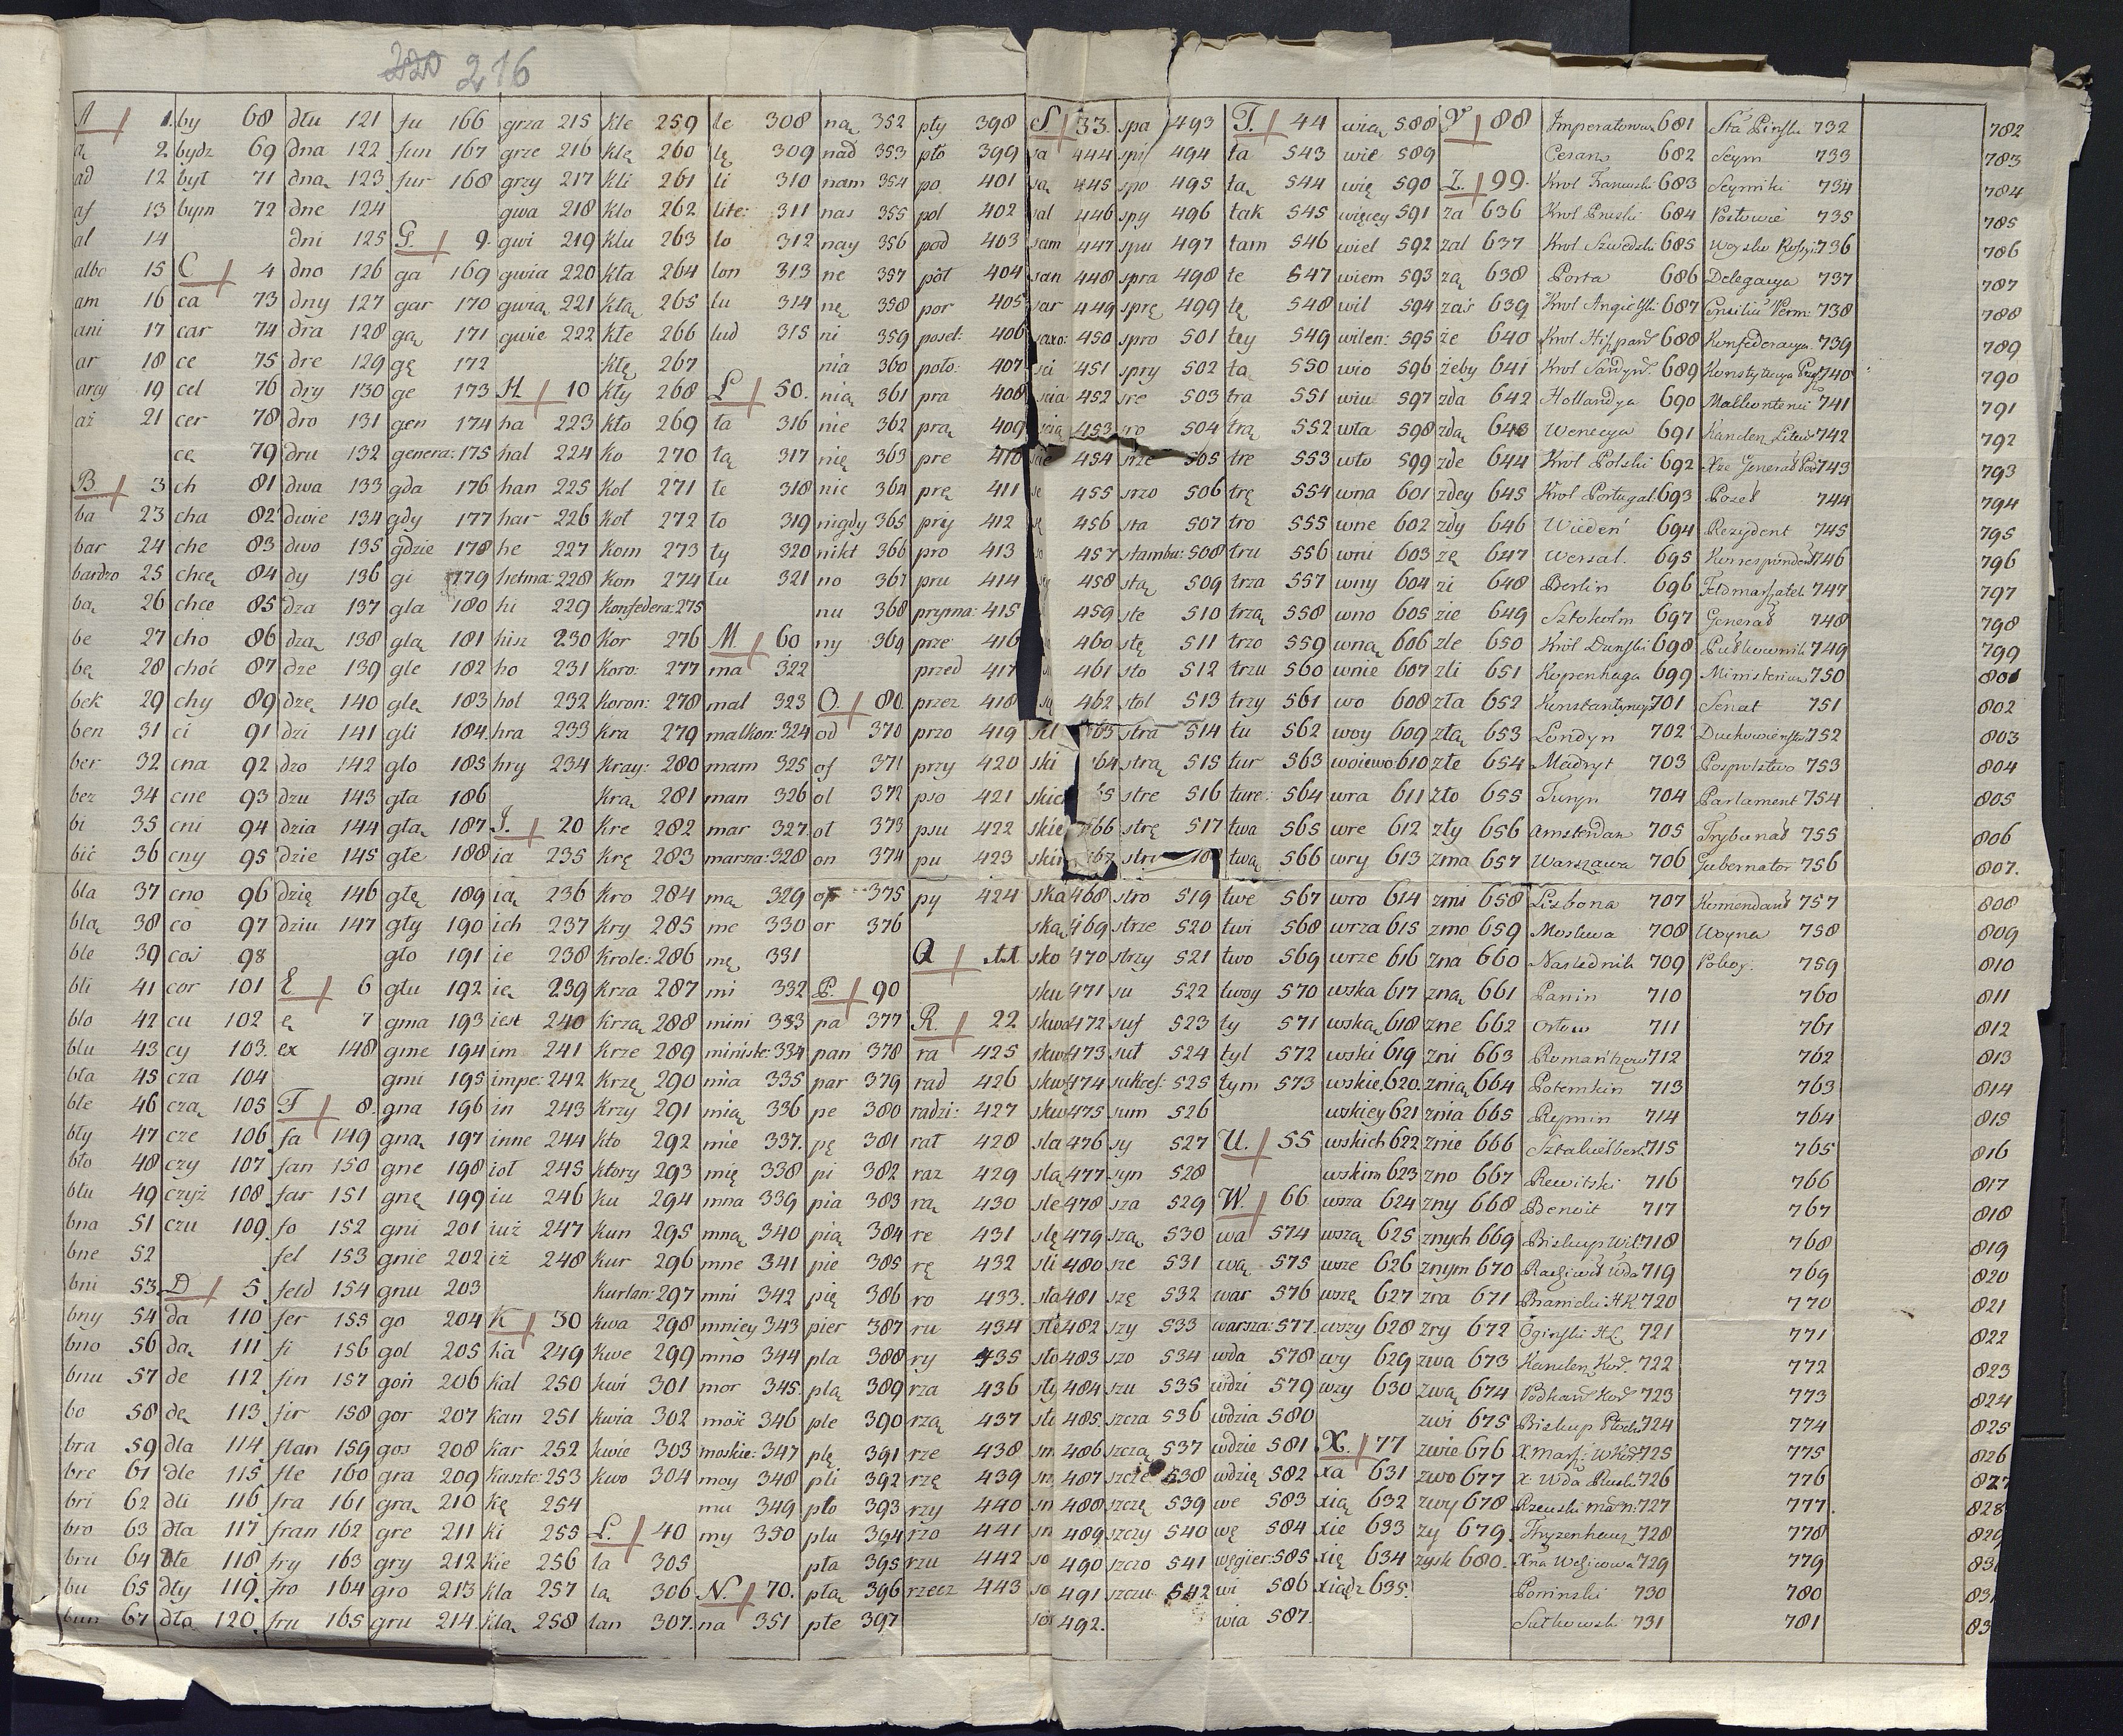 220 216
A 1.
ą 2
ad 12
af 13
al 14
albo 15
am 16
ani 17
ar 18
arcy 19
aż 21
B 3
ba 23
bar 24
bardzo 25
bą 26
be 27
bę 28
bek 29
ben 31
ber 32
bez 34
bi 35
bić 36
bla 37
blą 38
ble 39
bli 41
blo 42
blu 43
bła 45
błe 46
bły 47
bło 48
błu 49
bna 51
bne 52
bni 53
bny 54
bno 56
bnu 57
bo 58
bra 59
bre 61
bri 62
bro 63
bru 64
bu 65
bun 67
by 68
bydz 69
był 71
bym 72
C 4
ca 73
car 74
ce 75
cel 76
cer 78
cę 79
ch 81
cha 82
che 83
chcę 84
chce 85
cho 86
choć 87
chy 89
ci 91
cna 92
cne 93
cni 94
cny 95
cno 96
co 97
coś 98
cor 101
cu 102
cy 103
cza 104
czą 105
cze 106
czy 107
czyż 108
czu 109
D 5
da 110
dą 111
de 112
dę 113
dla 114
dle 115
dli 116
dła 117
dłe 118
dły 119
dło 120
dłu 121
dna 122
dną 123
dne 124
dni 125
dno 126
dny 127
dra 128
dre 129
dry 130
dro 131
dru 132
dwa 133
dwie 134
dwo 135
dy 136
dza 137
dzą 138
dze 139
dzę 140
dzi 141
dzo 142
dzu 143
dzia 144
dzie 145
dzię 146
dziu 147
E 6
ę 7
ex 148
F 8
fa 149
fan 150
far 151
fo 152
fel 153
feld 154
fer 155
fi 156
fin 157
fir 158
flan 159
fle 160
fra 161
fran 162
fry 163
fro 164
fru 165
fu 166
fun 167
fur 168
G. 9
ga 169
gar 170
gą 171
gę 172
ge 173
gen 174
genera: 175
gda 176
gdy 177
gdzie 178
gi 179
gla 180
glą 181
gle 182
glę 183
gli 184
glo 185
gła 186
głą 187
głe 188
głę 189
gły 190
gło 191
głu 192
gma 193
gme 194
gmi 195
gna 196
gną 197
gne 198
gnę 199
gni 201
gnie 202
gnu 203
go 204
gol 205
goń 206
gor 207
gos 208
gra 209
grą 210
gre 211
gry 212
gro 213
gru 214
grza 215
grze 216
grzy 217
gwa 218
gwi 219
gwia 220
gwią 221
gwie 222
H 10
ha 223
hal 224
han 225
har 226
he 227
hetma: 228
hi 229
hisz 230
ho 231
hol 232
hra 233
hry 234
J. 20
ia 235
ią 236
ich 237
ie 238
ię 239
iest 240
im 241
impe: 242
in 243
inne 244
ioł 245
iu 246
iuż 247
iż 248
K 30
ka 249
kal 250
kan 251
kar 252
kaszte: 253
kę 254
ki 255
kie 256
kla 257
klą 258
kle 259
klę 260
kli 261
klo 262
klu 263
kła 264
kłą 265
kłe 266
kłę 267
kły 268
kło 269
ko 270
kol 271
koł 272
kom 273
kon 274
konfedera: 275
kor 276
koro: 277
koron: 278
kra 279
kray: 280
krą 281
kre 282
krę 283
kro 284
kry 285
krole: 286
krza 287
krzą 288
krze 289
krzę 290
krzy 291
kto 292
ktory 293
ku 294
kun 295
kur 296
kurlan: 297
kwa 298
kwe 299
kwi 301
kwia 302
kwie 303
kwo 304
L. 40
la 305
lą 306
lan 307
le 308
lę 309
li 310
lite: 311
lo 312
lon 313
lu 314
lud 315
Ł 50.
ła 316
łą 317
łe 318
ło 319
ły 320
łu 321
M. 60
ma 322
mal 323
malkon: 324
mam 325
man 326
mar 327
marza: 328
mą 329
me 330
mę 331
mi 332
mini 333
ministe: 334
mia 335
mią 336
mie 337.
mię 338
mna 339
mną 340
mne 341
mni 342
mniey 343
mno 344
mor 345
mość 346
moskie: 347
moy 348
mu 349
my 350
N. 70.
na 351
ną 352
nad 353
nam 354
nas 355
nay 356
ne 357
nę 358
ni 359
nia 360
nią 361
nie 362
nię 363
nic 364
nigdy 365
nikt 366
no 367
nu 368
ny 369
O. 80
od 370
of 371
ol 372
oł 373
on 374
op 375
or 376
P. 90
pa 377
pan 378
par 379
pe 380
pę 381
pi 382
pia 383
pią 384
pie 385
pię 386
pier 387
pla 388
plą 389
ple 390
plę 391
pli 392
plo 393
plu 394
pła 395
płą 396
płe 397
pły 398
pło 399
po 401
pol 402
pod 403
pół 404
por 405
poseł: 406
poło: 407
pra 408
prą 409
pre 410
prę 411
pry 412
pro 413
pru 414
pryma: 415
prze 416
przed 417
przez 418
przo 419
przy 420
pso 421
psu 422
pu 423
py 424
Q 11
R. 22
ra 425
rad 426
radzi: 427
rał 428
raz 429
rą 430
re 431
rę 432
ro 433
ru 434
ry 435
rza 436
rzą 437
rze 438
rzę 439
rzy 440
rzo 441
rzu 442
rzecz 443
S 33.
sa 444
są 445
sal 446
sam 447
san 448
sar 449
saxo: 450
sci 451
scia 452
scią 453
scie 454
455
456
457
458
459
460
461
462
463
ski 464
skich 465
skie 466
467
ska 468
ską 469
sko 470
sku 471
472
473
474
475
sla 476
slą 477
sle 478
slę 479
sli 480
sła 481
słe 482
sło 483
sły 484
485
486
487
488
489
490
491
492.
spa 493
spi 494
spo 495
spy 496
spu 497
spra 498
sprę 499
spro 501
spry 502
sre 503
sro 504
srze 505
srzo 506
sta 507
stambu: 508
stą 509
ste 510
stę 511
sto 512
stol 513
stra 514
strą 515
stre 516
strę 517
stro 519
strze 520
strzy 521
su 522
suf 523
suł 524
sukces: 525
sum 526
sy 527
syn 528
sza 529
szą 530
sze 531
szę 532
szy 533
szo 534
szu 535
szcza 536
szczą 537
szcze 538
szczę 539
szczy 540
szczo 541
szczu 542
T. 44
ta 543
tą 544
tak 545
tam 546
te 547
tę 548
tey 549
550
tra 551
trą 552
tre 553
trę 554
tro 555
tru 556
trza 557
trzą 558
trzo 559
trzu 560
trzy 561
tu 562
tur 563
ture: 564
twa 565
twą 566
twe 567
twi 568
two 569
twoy 570
ty 571
tyl 572
tym 573
U. 55
W. 66
wa 574
wą 575
war 576
warsza: 577
wda 578
wdzi 579
wdzia 580
wdzie 581
wdzię 582
we 583
wę 584
węgier: 585
wi 586
wia 587.
wią 588
wie 589
wię 590
więcey 591
wiel 592
wiem 593
wil 594
wilen: 595
wio 596
wiu 597
wła 598
wło 599
wna 601
wne 602
wni 603
wny 604
wno 605
wną 606
wnie 607
wo 608
woy 609
woiewo: 610
wra 611
wre 612
wry 613
wro 614
wrza 615
wrze 616
wska 617
wską 618
wski 619
wskie 620
wskiey 621
wskich 622
wskim 623
wsza 624
wszą 625
wsze 626
wszę 627
wszy 628
wy 629
wzy 630
X. 77
xa 631
xią 632
xie 633
xię 634
xiądz 635.
Y 88
Z. 99.
za 636
zal 637
zą 638
zaś 639
że 640
żeby 641
zda 642
zdą 643
zde 644
zdey 645
zdy 646
zę 647
zi 648
zie 649
zle 650
zli 651
zła 652
złą 653
złe 654
zło 655
zły 656
zma 657
zmi 658
zmo 659
zna 660
zną 661
zne 662
zni 663
znią 664
znia 665
znie 666
zno 667
zny 668
znych 669
znym 670
zra 671
zry 672
zwa 673
zwą 674
zwi 675
zwie 676
zwo 677
zwy 678
zy 679
zysk 680.
Imperatorowa 681
Cesarz 682
Krol Francuski 683
Krol Pruski 684
Krol Szwedzki 685
Porta 686
Krol Angielski 687
Krol Hiszpans 688
Krol Sardyns 689
Hollandya 690
Wenecya 691
Krol Polski 692
Krol Portugal: 693
Wiedeń 694
Wersal. 695
Berlin 696
Sztokolm 697
Król Dunski 698
Kopenhaga 699
Konstantynop 701
Londyn 702
Madryt 703
Turyn 704
Amsterdam 705
Warszawa 706
Lisbona 707
Moskwa 708
Następnik 709
Panin 710
Orłow 711
Romańzow 712
Potemkin 713
Repnin 714
Sztakielberk 715
Rewitski 716
Benoit 717
Biskup Wil: 718
Radziwił Wda 719
Branicki H.K. 720
Oginski H.L. 721
Kanclerz Kor. 722
Podkan: Kor 723
Biskup Płocki 724
X. Mars: W. Kor 725
X. Wda Ruski 726
Rzewuski Mar: N: 727
Tyzenhauz 728
729
Poninski 730
Sułkowski 731
Sta Pinski 732
Seym 733
Seymiki 734
Posłowie 735
Woysko Rossyi: 736
Delegacya 737
Consilium Perm: 738
Konfederacya 739
Konstytucya 740
Malkontenci 741
Kanclerz Litew 742
Xze Generał Pod 743
Poseł 744
Rezydent 745
Korrespondent 746
Feldmarszałek 747
Generał 748
Pułkownik 749
Ministerium 750
Senat 751
Duchowieństwo 752
Pospolstwo 753
Parlament 754
Trybunał 755
Gubernator 756
Komendant 757
Woyna 758
Pokoy. 759
760
761
762
763
764
765
766
767
768
769
770
771
772
773
774
775
776
777
778
779
780
781
782
783
784
785
786
787
788
789
790
791
792
793
794
795
796
797
798
799
801
802
803
804
805
806
807.
808
809
810
811
812
813
814
815
816
817
818
819
820
821
822
823
824
825
826
827
828
829